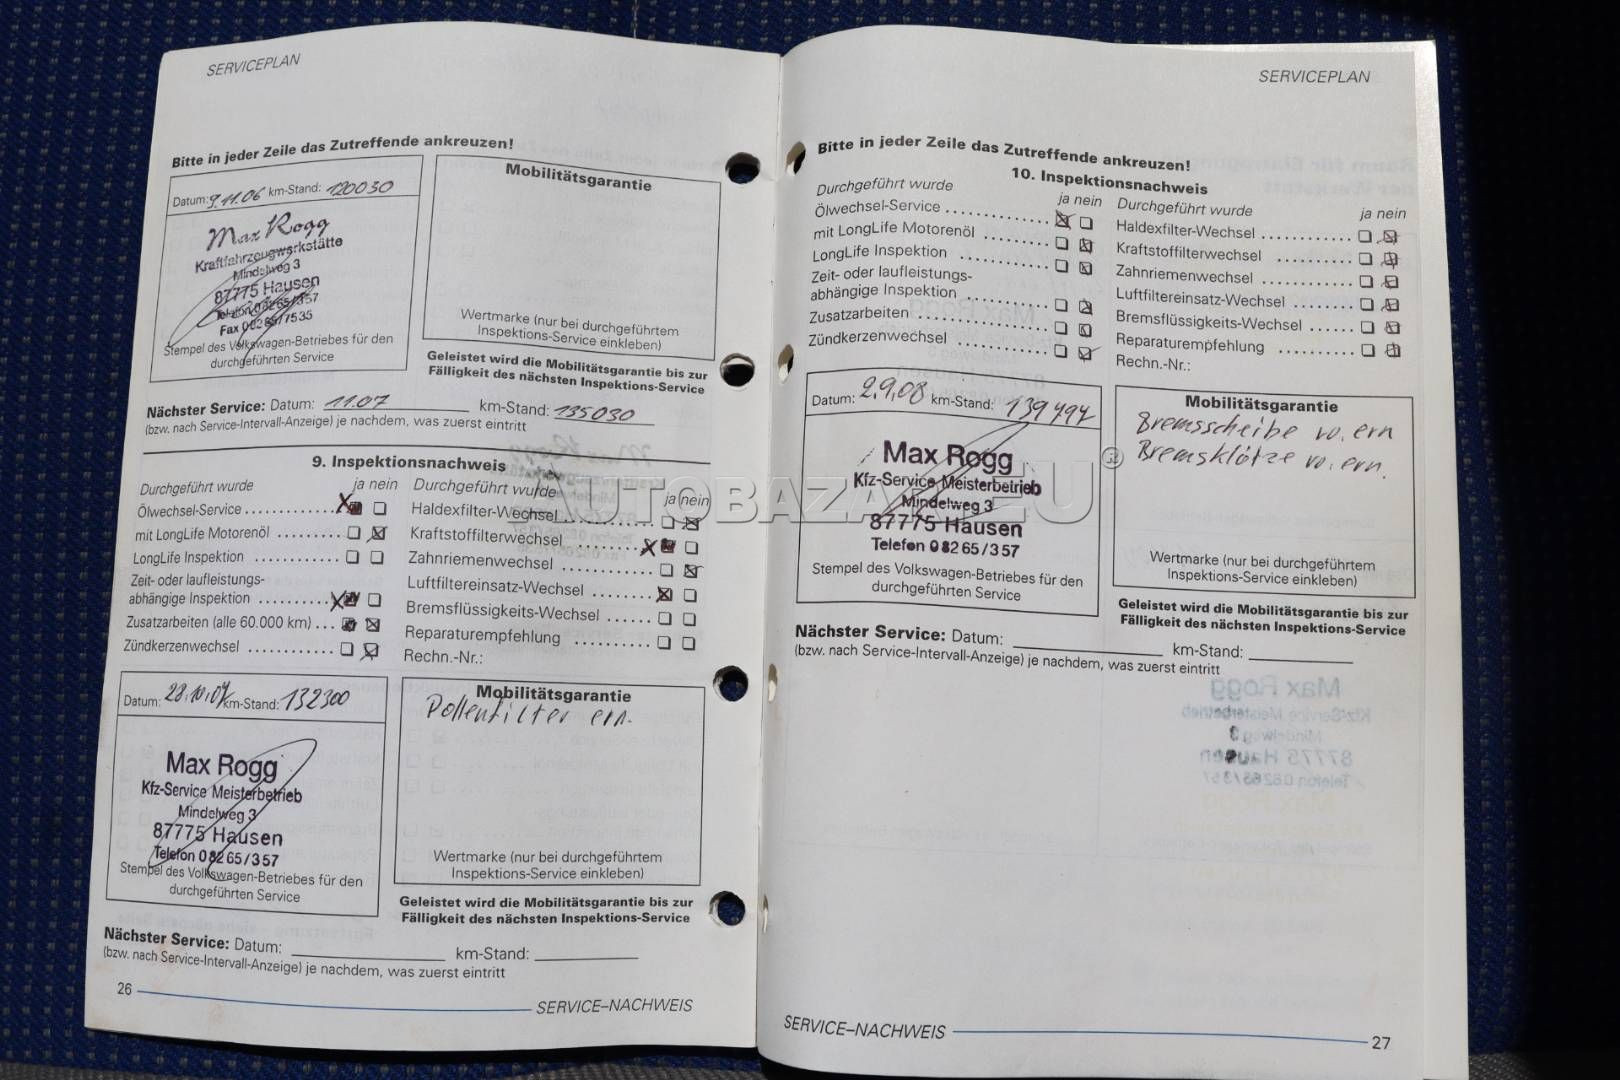 SERVICEPLAN
Bitte in jeder Zeile das Zutreffende ankreuzen!
Datum: 9.11.06 km-Stand: 120030
Max Rogg
Kraftfahrzeugwerkstätte
Mindelweg 3
87775 Hausen
Telefon 08265/357
Fax 08265/7535
Stempel des Volkswagen-Betriebes für den
durchgeführten Service
Mobilitätsgarantie
Wertmarke (nur bei durchgeführtem
Inspektions-Service einkleben)
Geleistet wird die Mobilitätsgarantie bis zur
Fälligkeit des nächsten Inspektions-Service
Nächster Service: Datum: 11.07 km-Stand: 135030
(bzw. nach Service-Intervall-Anzeige) je nachdem, was zuerst eintritt
9. Inspektionsnachweis
Durchgeführt wurde ja nein
Ölwechsel-Service
mit LongLife Motorenöl
LongLife Inspektion
Zeit- oder laufleistungs-
abhängige Inspektion
Zusatzarbeiten (alle 60.000 km)
Zündkerzenwechsel
Durchgeführt wurde ja nein
Haldexfilter-Wechsel
Kraftstoffilterwechsel
Zahnriemenwechsel
Luftfiltereinsatz-Wechsel
Bremsflüssigkeits-Wechsel
Reparaturempfehlung
Rechn.-Nr.:
Datum: 28.10.07 km-Stand: 132300
Max Rogg
Kfz-Service Meisterbetrieb
Mindelweg 3
87775 Hausen
Telefon 08265/357
Stempel des Volkswagen-Betriebes für den
durchgeführten Service
Mobilitätsgarantie
Pollenfilter ern.
Wertmarke (nur bei durchgeführtem
Inspektions-Service einkleben)
Geleistet wird die Mobilitätsgarantie bis zur
Fälligkeit des nächsten Inspektions-Service
Nächster Service: Datum: km-Stand:
(bzw. nach Service-Intervall-Anzeige) je nachdem, was zuerst eintritt
26
SERVICE–NACHWEIS
SERVICEPLAN
Bitte in jeder Zeile das Zutreffende ankreuzen!
10. Inspektionsnachweis
Durchgeführt wurde ja nein
Ölwechsel-Service
mit LongLife Motorenöl
LongLife Inspektion
Zeit- oder laufleistungs-
abhängige Inspektion
Zusatzarbeiten
Zündkerzenwechsel
Durchgeführt wurde ja nein
Haldexfilter-Wechsel
Kraftstoffilterwechsel
Zahnriemenwechsel
Luftfiltereinsatz-Wechsel
Bremsflüssigkeits-Wechsel
Reparaturempfehlung
Rechn.-Nr.:
Datum: 2.9.08 km-Stand: 139497
Max Rogg
Kfz-Service Meisterbetrieb
Mindelweg 3
87775 Hausen
Telefon 08265/357
Stempel des Volkswagen-Betriebes für den
durchgeführten Service
Mobilitätsgarantie
Bremsscheibe vo. ern
Bremsklötze vo. ern.
Wertmarke (nur bei durchgeführtem
Inspektions-Service einkleben)
Geleistet wird die Mobilitätsgarantie bis zur
Fälligkeit des nächsten Inspektions-Service
Nächster Service: Datum: km-Stand:
(bzw. nach Service-Intervall-Anzeige) je nachdem, was zuerst eintritt
SERVICE–NACHWEIS
27
AUTOBAZAR.EU®